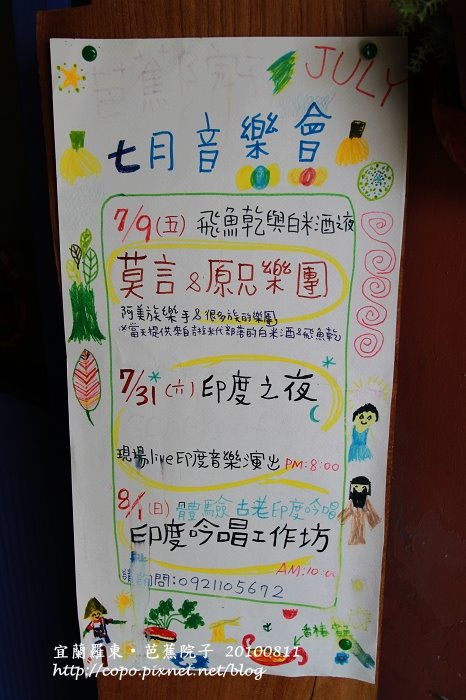 芭蕉院子
JULY
七月音樂會
7/9(五) 飛魚乾與白米酒之夜
莫言&原兄樂團
阿美族樂手&很多族的樂團
※當天提供來自吉拉米代部落的白米酒&飛魚乾
7/31(六) 印度之夜
現場live印度音樂演出 PM:8:00
8/1(日) 體驗古老印度吟唱
印度吟唱工作坊
AM:10:00
請詢問:0921105672
香椿
宜蘭羅東•芭蕉院子 20100811
http://copo.pixnet.net/blog